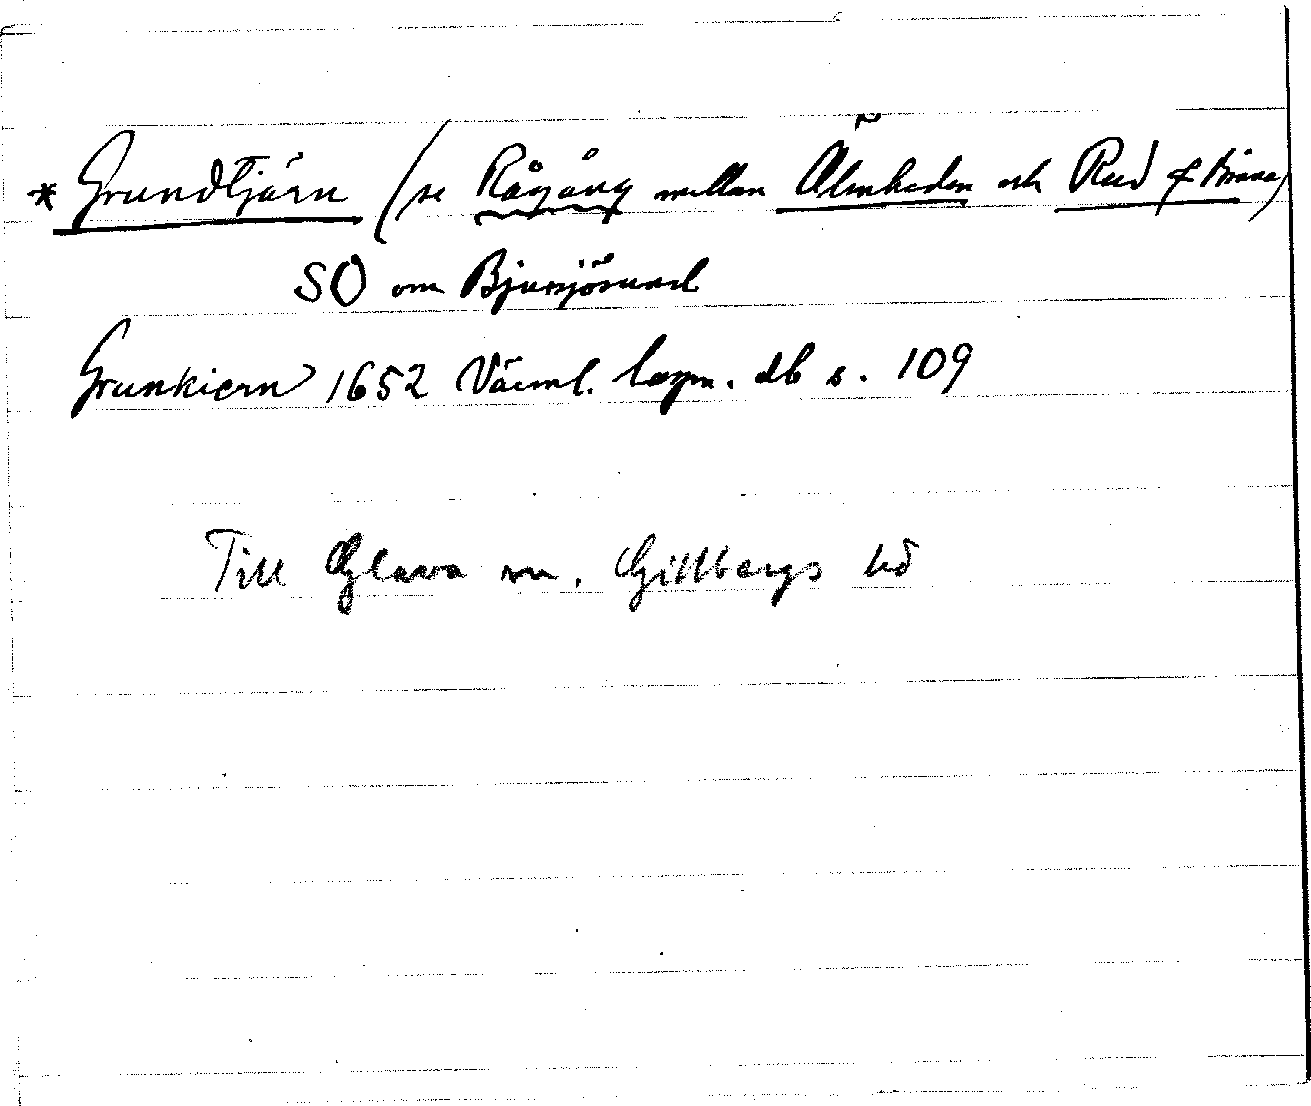 * Grundtjärn (se Rågång mellan Älmheden och Rud
SO om Bjursjösund
Grunkiern 1652 Värml. lagm. db s. 109
Till Glava sn. Gillbergs hd